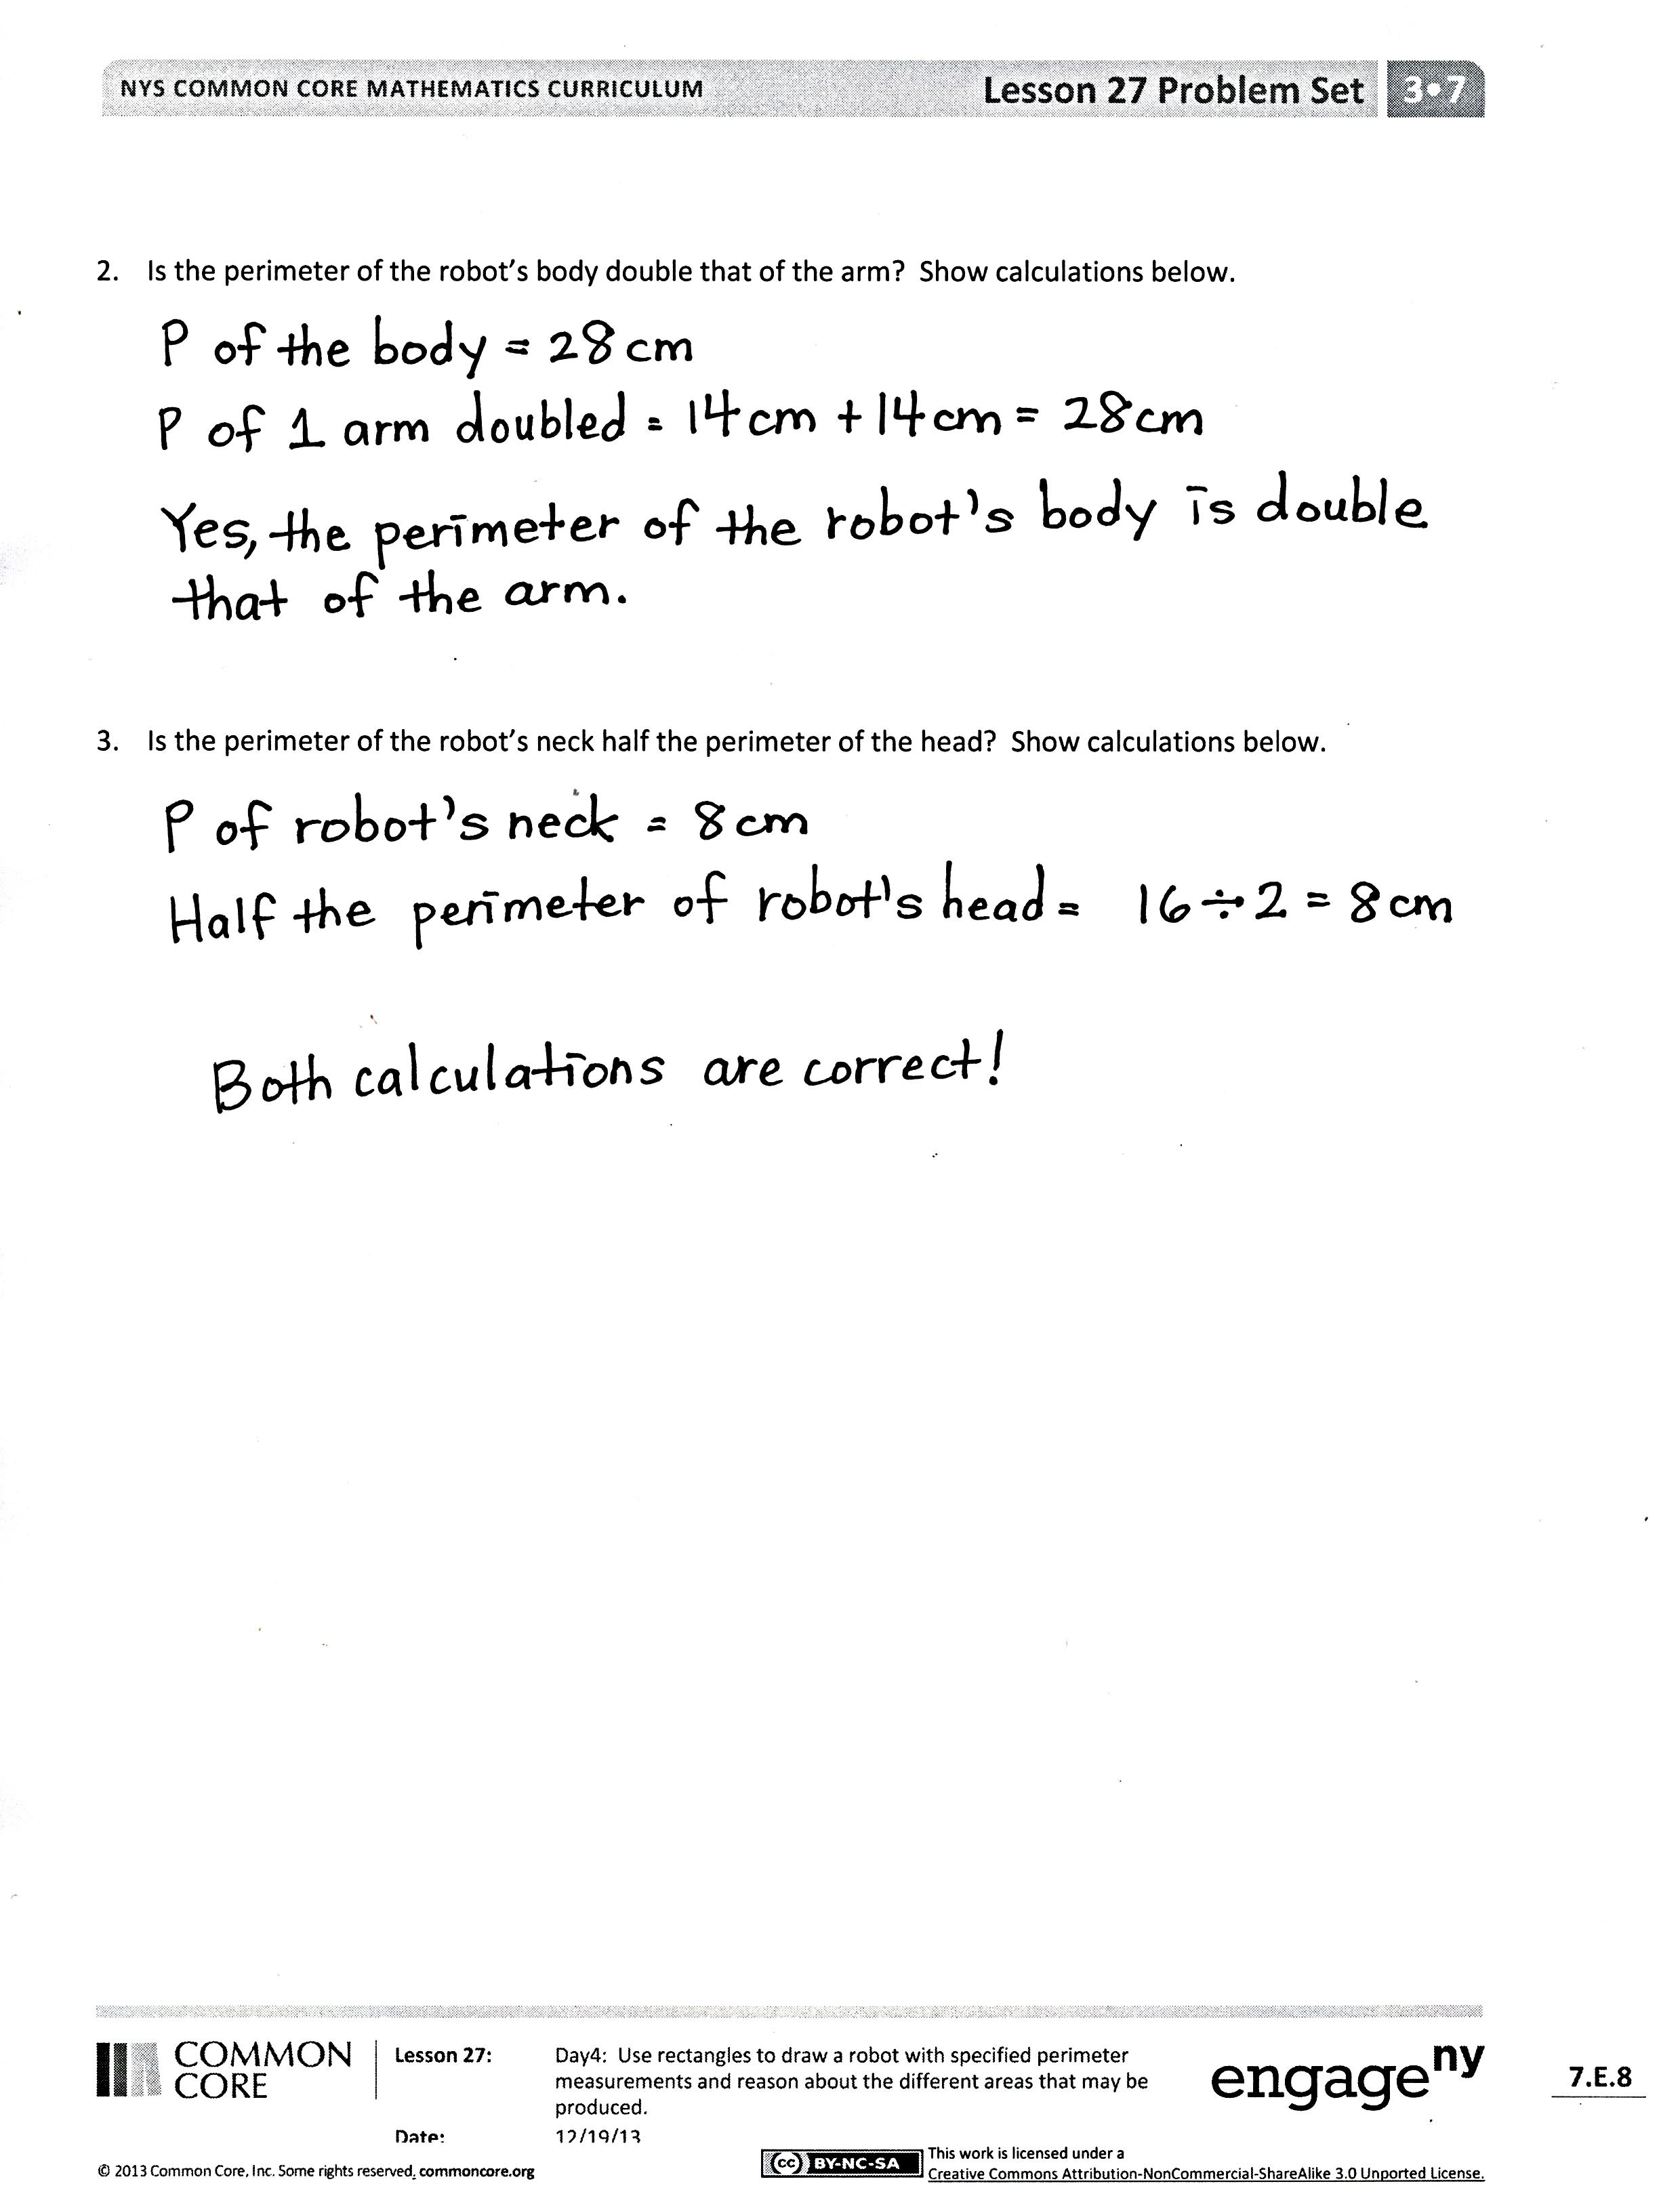 NYS COMMON CORE MATHEMATICS CURRICULUM
Lesson 27 Problem Set
3•7
2. Is the perimeter of the robot's body double that of the arm? Show calculations below.
P of the body = 28 cm
P of 1 arm doubled = 14 cm + 14 cm = 28 cm
Yes, the perimeter of the robot's body is double
that of the arm.
3. Is the perimeter of the robot's neck half the perimeter of the head? Show calculations below.
P of robot's neck = 8 cm
Half the perimeter of robot's head = 16 ÷ 2 = 8 cm
Both calculations are correct!
COMMON
CORE
Lesson 27:
Day4: Use rectangles to draw a robot with specified perimeter
measurements and reason about the different areas that may be
produced.
Date:
12/19/13
engageny
7.E.8
© 2013 Common Core, Inc. Some rights reserved. commoncore.org
cc BY-NC-SA
This work is licensed under a
Creative Commons Attribution-NonCommercial-ShareAlike 3.0 Unported License.